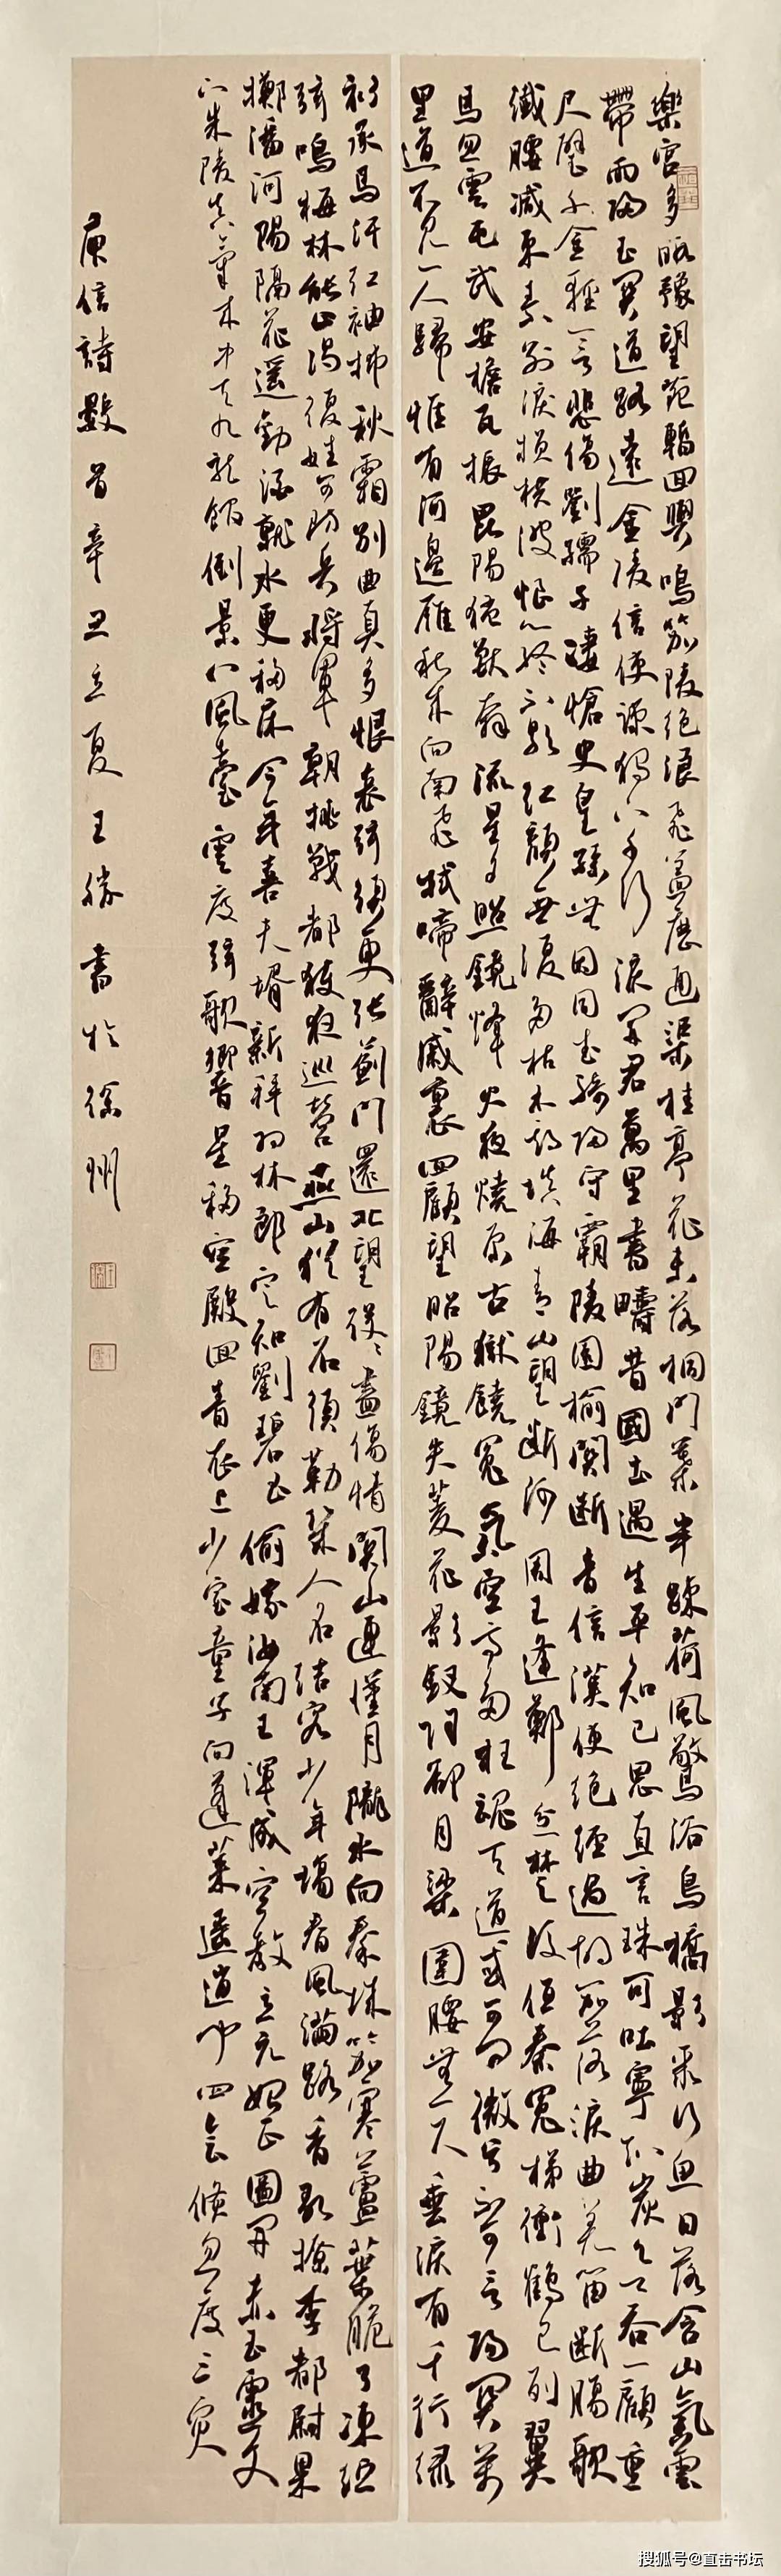 樂宮多暇豫望苑暫回輿鳴笳陵絕浪飛蓋歷通渠桂亭花未落桐門葉半疎荷風驚浴鳥橋影聚行魚日落含山氣雲
帶雨歸玉關道路遠金陵信使疎獨下千行淚開君萬里書疇昔國士遇生平知己恩直言珠可吐寧知炭欲吞一顧重
尺璧千金輕一言悲傷劉孺子凄愴史皇孫無因同武騎歸守霸陵園榆關斷音信漢使絕經過胡笳落淚曲羌笛斷腸歌
纖腰減束素別淚損橫波恨心終不歇紅顏無復多枯木期填海青山望斷河周王逢鄭忿楚后值秦冤梯衝鶴已列翼
馬忽雲屯武安檐瓦振昆陽猛獸奔流星夕照鏡烽火夜燒原古獄饒冤氣空亭多枉魂天道或可問微兮不可言陽關萬
里道不見一人歸惟有河邊雁秋來向南飛拭啼辭戚裏回顧望昭陽鏡失菱花影釵除却月梁圍腰無一尺垂淚有千行綠
衫承馬汗紅袖拂秋霜別曲真多恨哀弦須更張薊門還北望役役盡傷情關山連漢月隴水向秦城笳寒蘆葉脆弓凍紵
弦鳴梅林能止渴復姓可防兵將軍朝挑戰都護夜巡營燕山猶有石須勒幾人名結客少年場春風滿路香歌撩李都尉果
擲潘河陽隔花遙勸酒就水更移床今年喜夫壻新拜羽林郎定知劉碧玉偷嫁汝南王渾成空教立元始正圖開赤玉靈文
下朱陵真氣來中天九龍館倒景八風臺雲度弦歌響星移空殿回青衣上少室童子向蓬萊逍遙聞四會倏忽度三災
庾信詩數首辛丑立夏王勝書於徐州
搜狐号@直击书坛